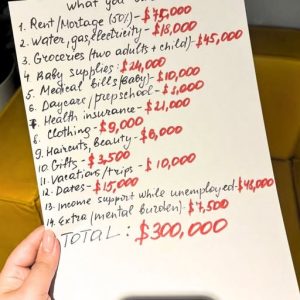 What you
1. Rent/Mortage (50%) - $75,000
2. Water, gas, electricity - $18,000
3. Groceries (two adults + child) - $45,000
4. Baby supplies - $24,000
5. Medical bills (baby) - $10,000
6. Daycare/prepschool -
7. Health insurance - $21,000
8. Clothing - $9,000
9. Haircuts, Beauty - $6,000
10. Gifts - $3,500
11. Vacations/trips - $10,000
12. Dates - $15,000
13. Income support while unemployed -
14. Extra (mental burden) - $7,500
TOTAL: $300,000